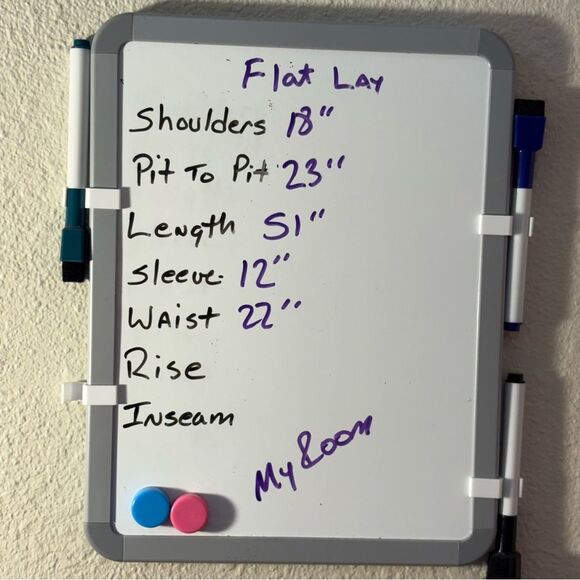 Flat Lay
Shoulders 18"
Pit To Pit 23"
Length 51"
Sleeve 12"
Waist 22"
Rise
Inseam
My Room